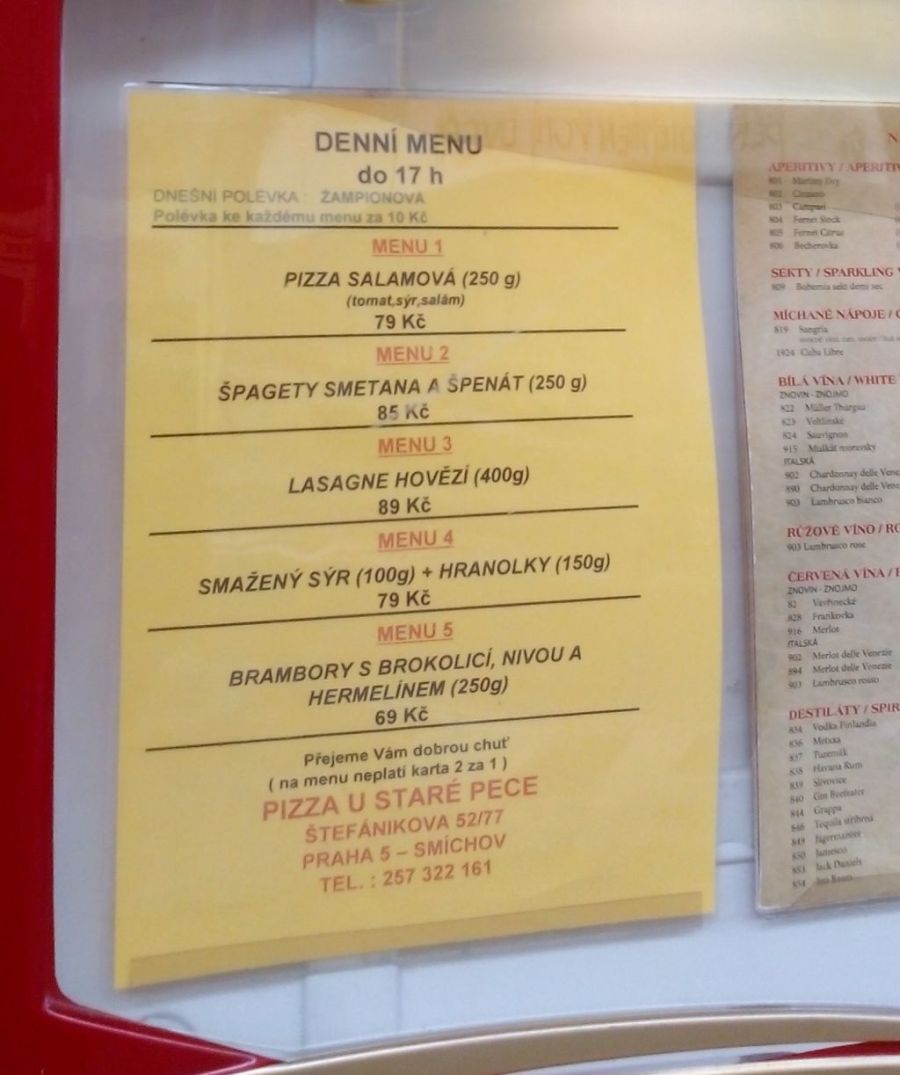 DENNÍ MENU
do 17 h
DNEŠNÍ POLÉVKA : ŽAMPIONOVÁ
Polévka ke každému menu za 10 Kč
MENU 1
PIZZA SALAMOVÁ (250 g)
(tomat,sýr,salám)
79 Kč
MENU 2
ŠPAGETY SMETANA A ŠPENÁT (250 g)
85 Kč
MENU 3
LASAGNE HOVĚZÍ (400g)
89 Kč
MENU 4
SMAŽENÝ SÝR (100g) + HRANOLKY (150g)
79 Kč
MENU 5
BRAMBORY S BROKOLICÍ, NIVOU A
HERMELÍNEM (250g)
69 Kč
Přejeme Vám dobrou chuť
( na menu neplatí karta 2 za 1 )
PIZZA U STARÉ PECE
ŠTEFÁNIKOVA 52/77
PRAHA 5 – SMÍCHOV
TEL. : 257 322 161
APERITIVY / APERITIV
801 Martiny Dry
802 Cinzano
803 Campari
804 Fernet Stock
805 Fernet Citrus
806 Becherovka
SEKTY / SPARKLING
809 Bohemia sekt demi sec
MÍCHANÉ NÁPOJE /
819 Sangria
1924 Cuba Libre
BÍLÁ VÍNA / WHITE
ZNOVIN - ZNOJMO
822 Müller Thurgau
823 Veltlínské
824 Sauvignon
915 Muškát moravský
ITALSKÁ
902 Chardonnay delle Vene
890 Chardonnay delle Vene
903 Lambrusco bianco
RŮŽOVÉ VÍNO / RO
903 Lambrusco rose
ČERVENÁ VÍNA /
ZNOVIN - ZNOJMO
82 Vavřinecké
828 Frankovka
916 Merlot
ITALSKÁ
902 Merlot delle Venezie
894 Merlot delle Venezie
903 Lambrusco rosso
DESTILÁTY / SPIR
834 Vodka Finlandia
836 Metaxa
837 Tuzemák
838 Havana Rum
839 Slivovice
840 Gin Beefeater
844 Grappa
846 Tequila stříbrná
849 Jägermaister
850 Jameson
853 Jack Daniels
854 Jim Beam